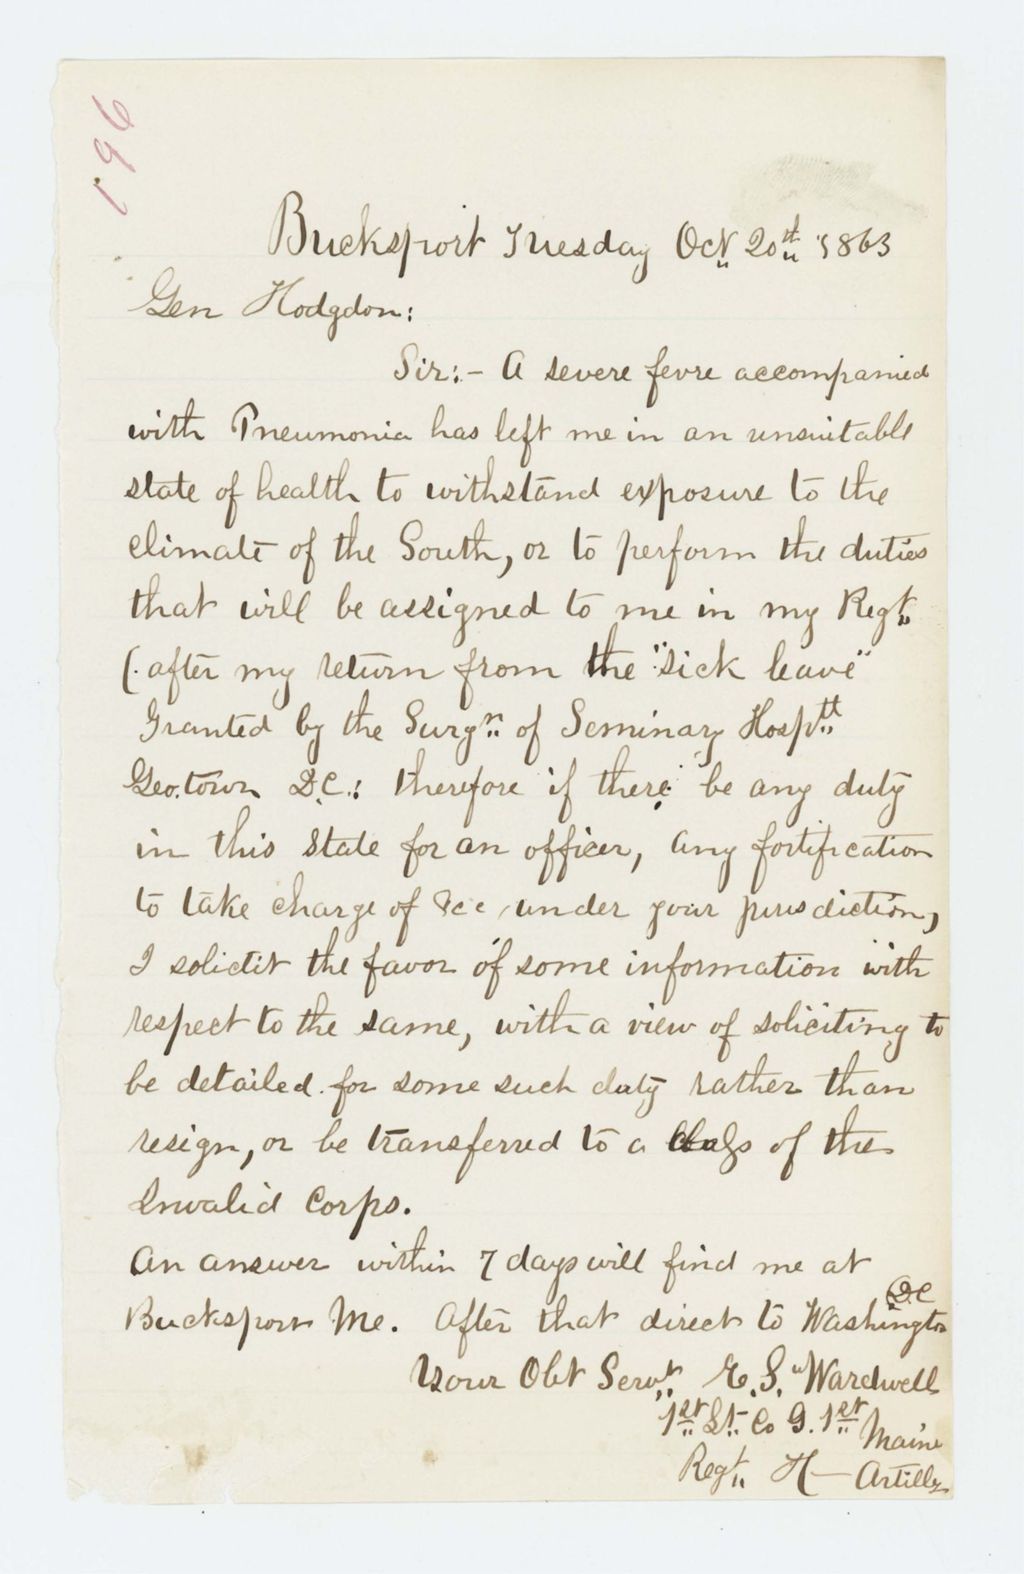 196
Bucksport Tuesday Oct. 20th 1863
Gen Hodgdon:
Sir:- A severe fevre accompanied
with Pneumonia has left me in an unsuitabll
state of health to withstand exposure to the
climate of the South, or to perform the duties
that will be assigned to me in my Regt.
(. after my return from the "sick leave"
Granted by the Surgn. of Seminary Hosptl
Geo.town D.C.: therefore if there be any duty
in this State for an officer, any fortification
to take charge of &c, under your jurisdiction,
I solictit the favor of some information with
respect to the same, with a view of soliciting to
be detailed for some such duty rather than
resign, or be transferred to a class of the
Invalid Corps.
An answer within 7 days will find me at
Bucksport Me. After that direct to Washington DC
Your Obt Servt. E. S. Wardwell
1st Lt. Co G. 1st Maine
Regt. H— Artilly